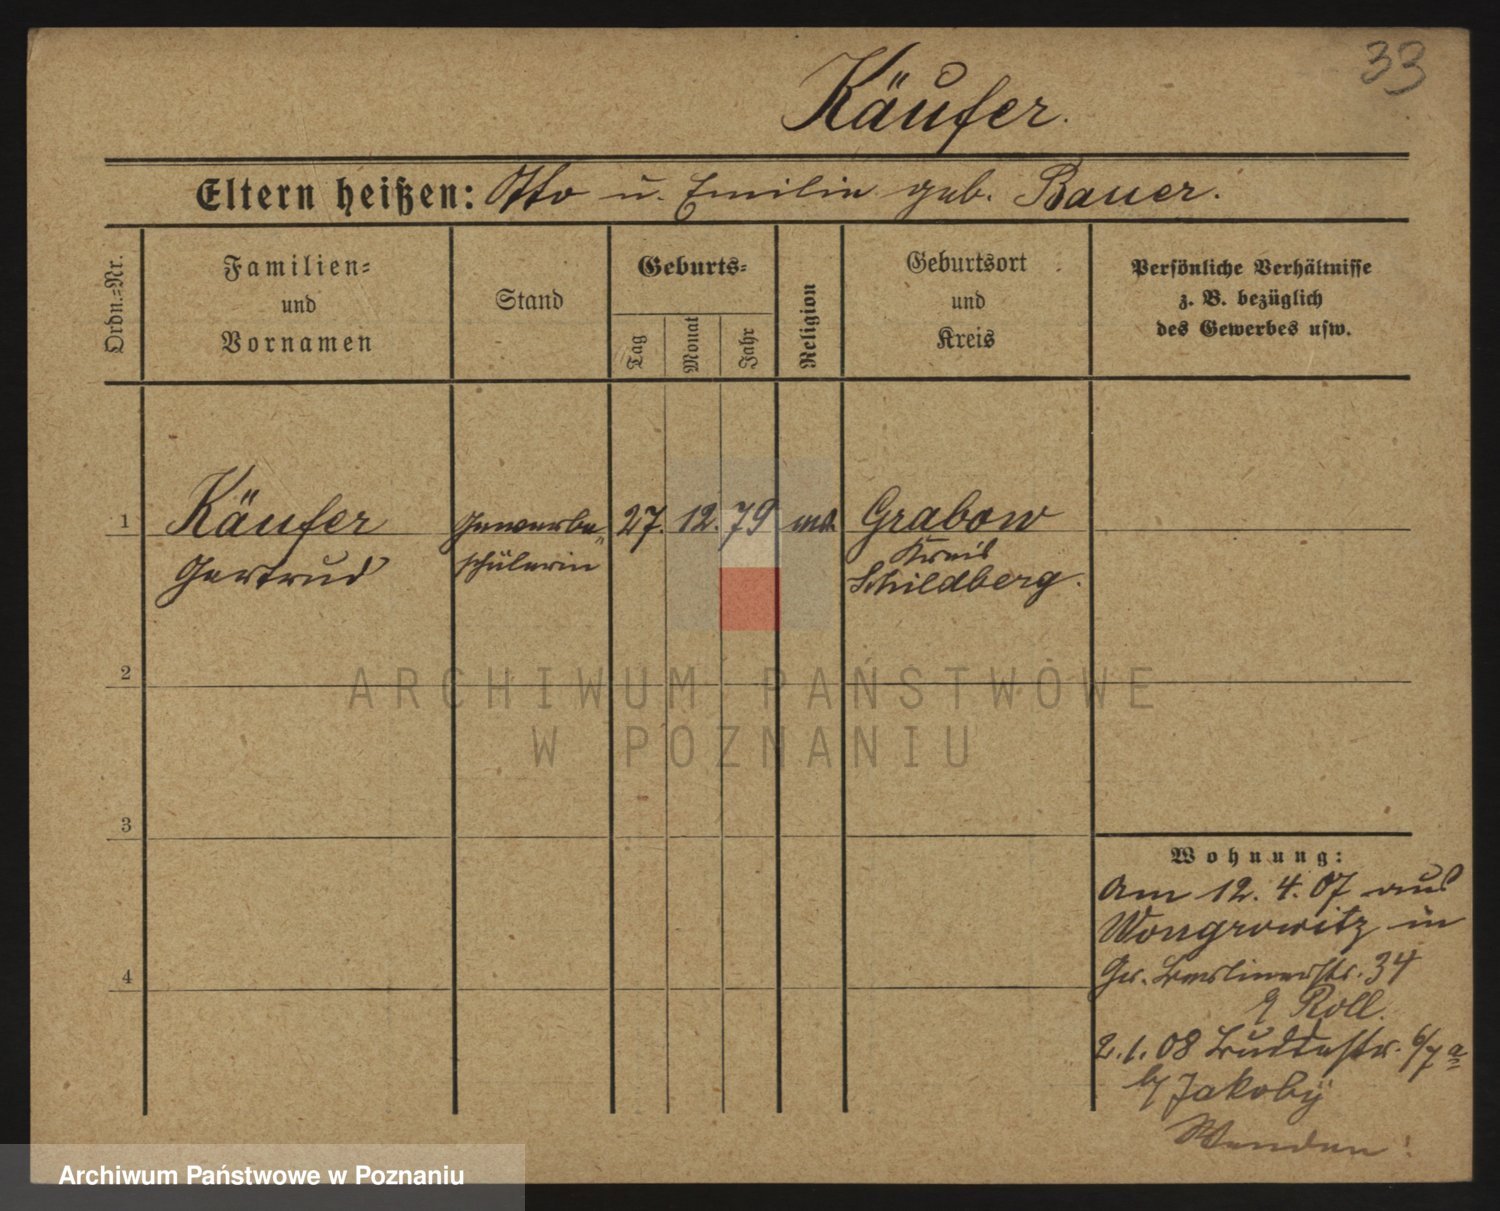 33
Käufer.
Eltern heißen: Otto u. Emilie geb. Bauer.
Ordn.=Nr.
Familien=
und
Vornamen
Stand
Geburts=
Tag
Monat
Jahr
Religion
Geburtsort
und
Kreis
Persönliche Verhältnisse
z. B. bezüglich
des Gewerbes usw.
1 Käufer Gewerbe„ 27. 12. 79 Grabow
Kreis
Gertrud schülerin Schildberg.
2
ARCHIWUM PAŃSTWOWE
W POZNANIU
3
Wohnung:
Am 12. 4. 07 aus
Wongrowitz in
Gr. Berlinerstr. 34
Roll.
4
2. 1. 08 Buddestr. 6/7 a
b/ Jakoby
Wenden!
Archiwum Państwowe w Poznaniu